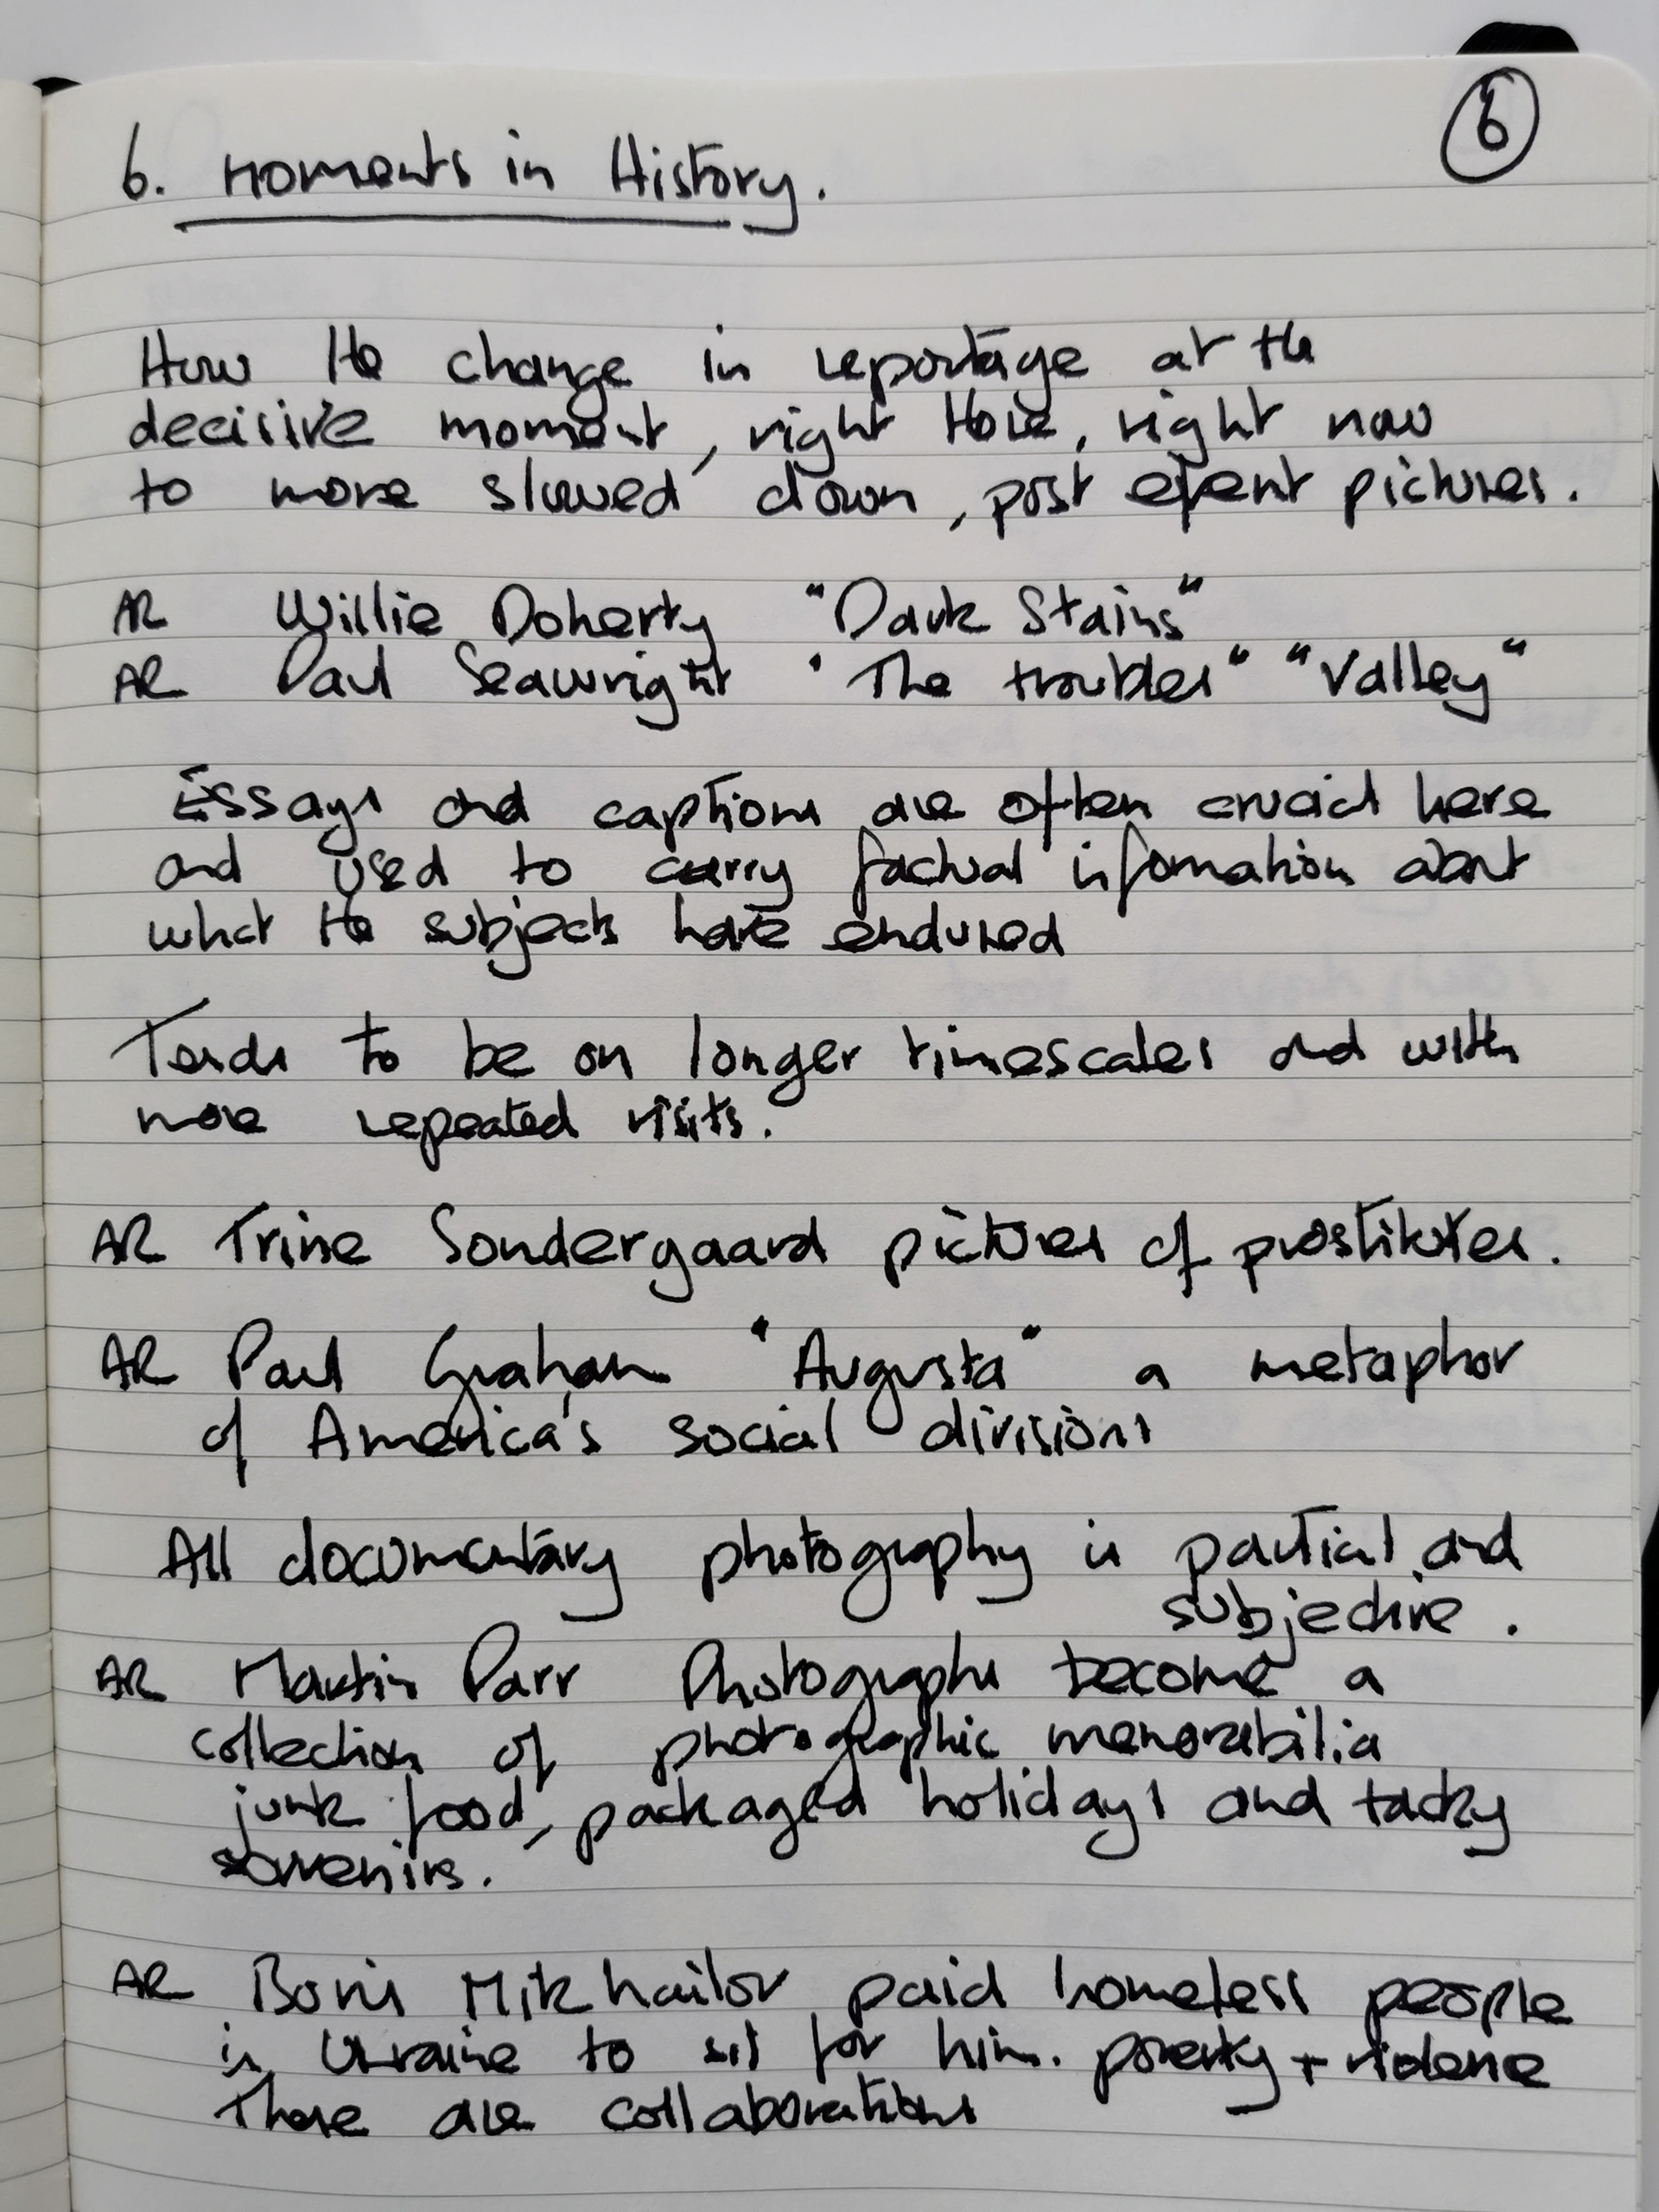 6
6. Moments in History.
How the change in reportage at the
decisive moment, right there, right now
to more slowed down, post event pictures.
AR Willie Doherty "Dark Stains"
AR Paul Seawright "The troubles" "Valley"
Essays and captions are often crucial here
and used to carry factual infomation about
what the subjects have endured
Tends to be on longer timescales and with
more repeated visits.
AR Trine Sondergaard pictures of prostitutes.
AR Paul Graham "Augusta" a metaphor
of America's social divisions
All documentary photography is partial and
subjective.
AR Martin Parr Photographs become a
collection of photographic memorabilia
junk food, packaged holidays and tacky
souvenirs.
AR Boris Mikhailov paid homeless people
in Ukraine to sit for him. poverty + violence
These are collaborations